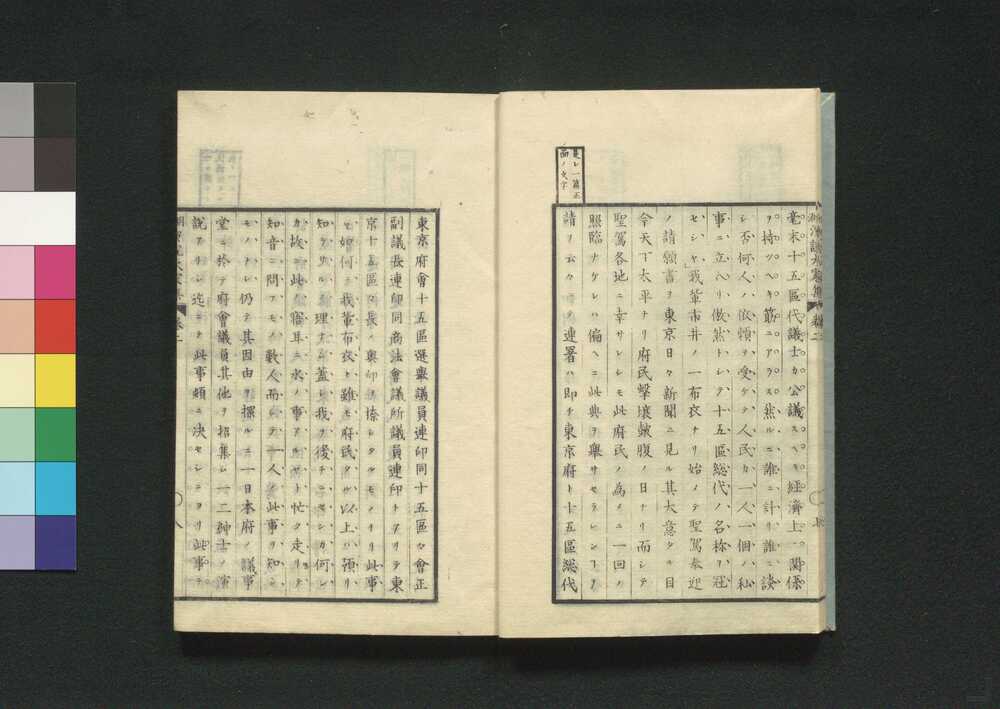 毫末十五區代議士カ公議スヘキ經濟上ニ關係
ヲ持ツヘキ筋ニアラス然ルニ誰ニ計リ誰ニ談
シ否何人ノ依賴ヲ受ケテ人民カ一人一個ノ私
事ニ立入リ傲然トシテ十五區総代ノ名称ヲ冠
セシヤ我輩市井ノ一布衣ナリ始メテ聖駕奉迎
ノ請願書ヲ東京日々新聞ニ見ル其大意タル目
今天下太平ナリ府民擊壤皷腹ノ日ナリ而シテ
聖駕各地ニ幸サレシモ此府民ノ為メニ一回ノ
照臨ナケレハ偏ヘニ此典ヲ舉サセラレンコヲ
請ヲ云々ノ連署ハ即チ東京府下十五區総代
是レ一篇正
面ノ文字
東京府會十五區選舉議員連印同十五區々會正
副議長連印同商法會議所議員連印トアリテ東
京十五區々長ノ奥印ヲ捺シタルモノナリ此事
ヤ如何ニ我輩布衣ト雖モ府民タル以上ハ預リ
知ラサルノ理ナシ蓋シ我ヲ後チニセシカ何レ
カ故ニ此ノ寤耳ニ水ノ事アルヤト忙ク走リテ
知音ニ問フモノ數人而シテ一人ノ此事ヲ知シ
モノナシ仍テ其因由ヲ探ルニ一日本府ノ議事
堂ニ於テ府會議員其他ヲ招集シ一二紳士ノ演
説アリシ迄ニテ此事類ニ決セシナヲリ此事ニ
卷二
八